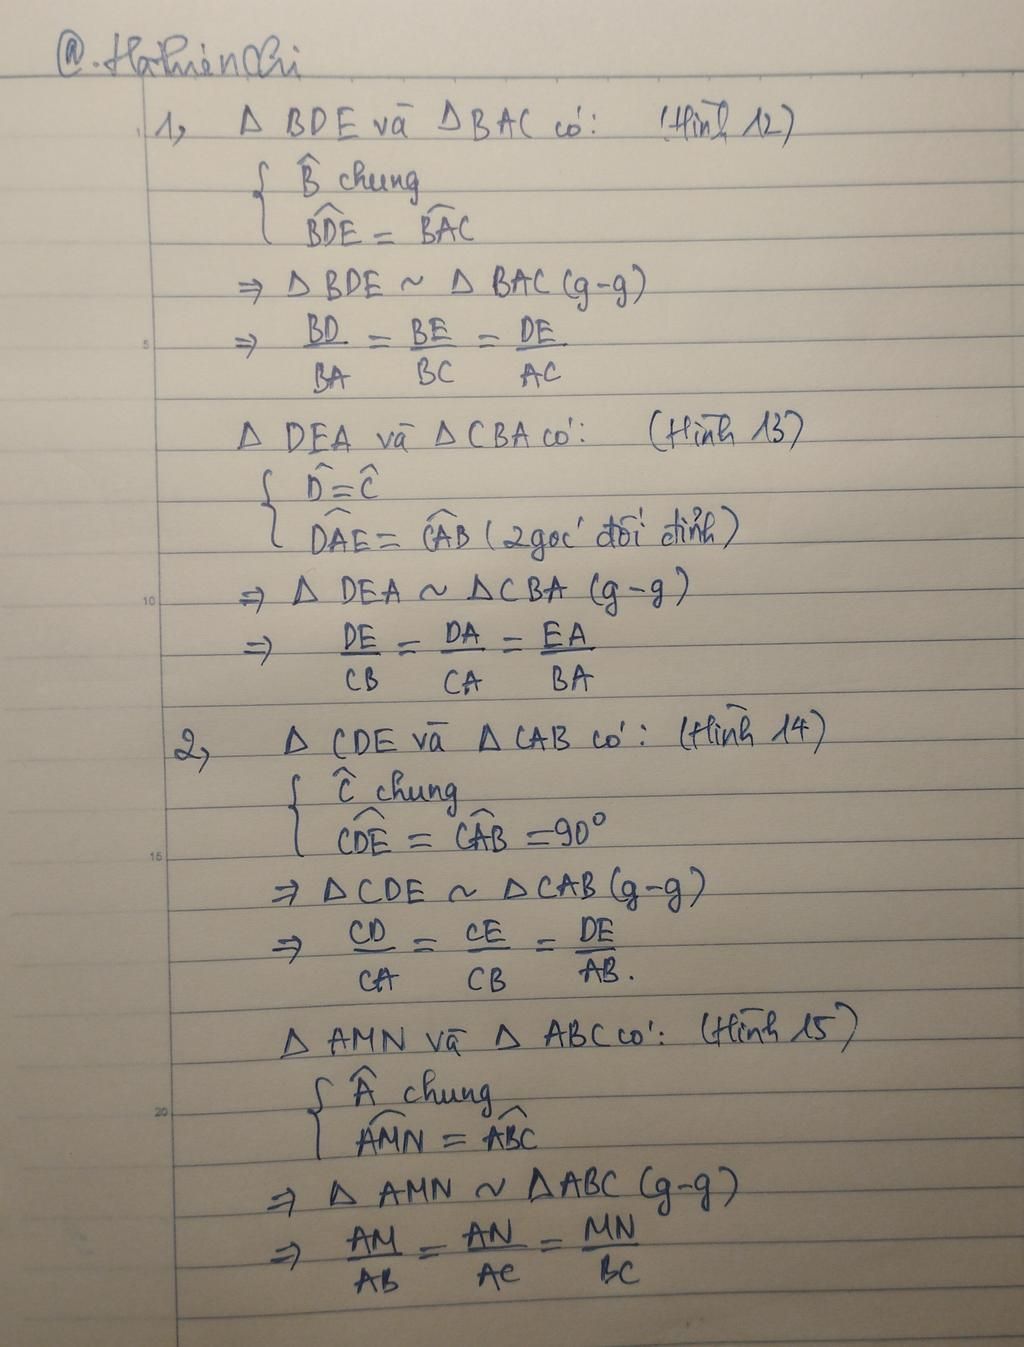 @.HaThienChi
1, Δ BDE và Δ BAC có: (Hình 12)
{ B̂ chung
BDE^ = BAC^
⇒ Δ BDE ~ Δ BAC (g-g)
⇒ BD/BA = BE/BC = DE/AC
5
Δ DEA và Δ CBA có: (Hình 13)
{ D̂ = Ĉ
DAE^ = CAB^ (2 góc đối đỉnh)
⇒ Δ DEA ~ Δ CBA (g-g)
10
⇒ DE/CB = DA/CA = EA/BA
2, Δ CDE và Δ CAB có: (Hình 14)
{ Ĉ chung
CDE^ = CAB^ = 90°
15
⇒ Δ CDE ~ Δ CAB (g-g)
⇒ CD/CA = CE/CB = DE/AB.
Δ AMN và Δ ABC có: (Hình 15)
{ Â chung
20
AMN^ = ABC^
⇒ Δ AMN ~ Δ ABC (g-g)
⇒ AM/AB = AN/AC = MN/BC